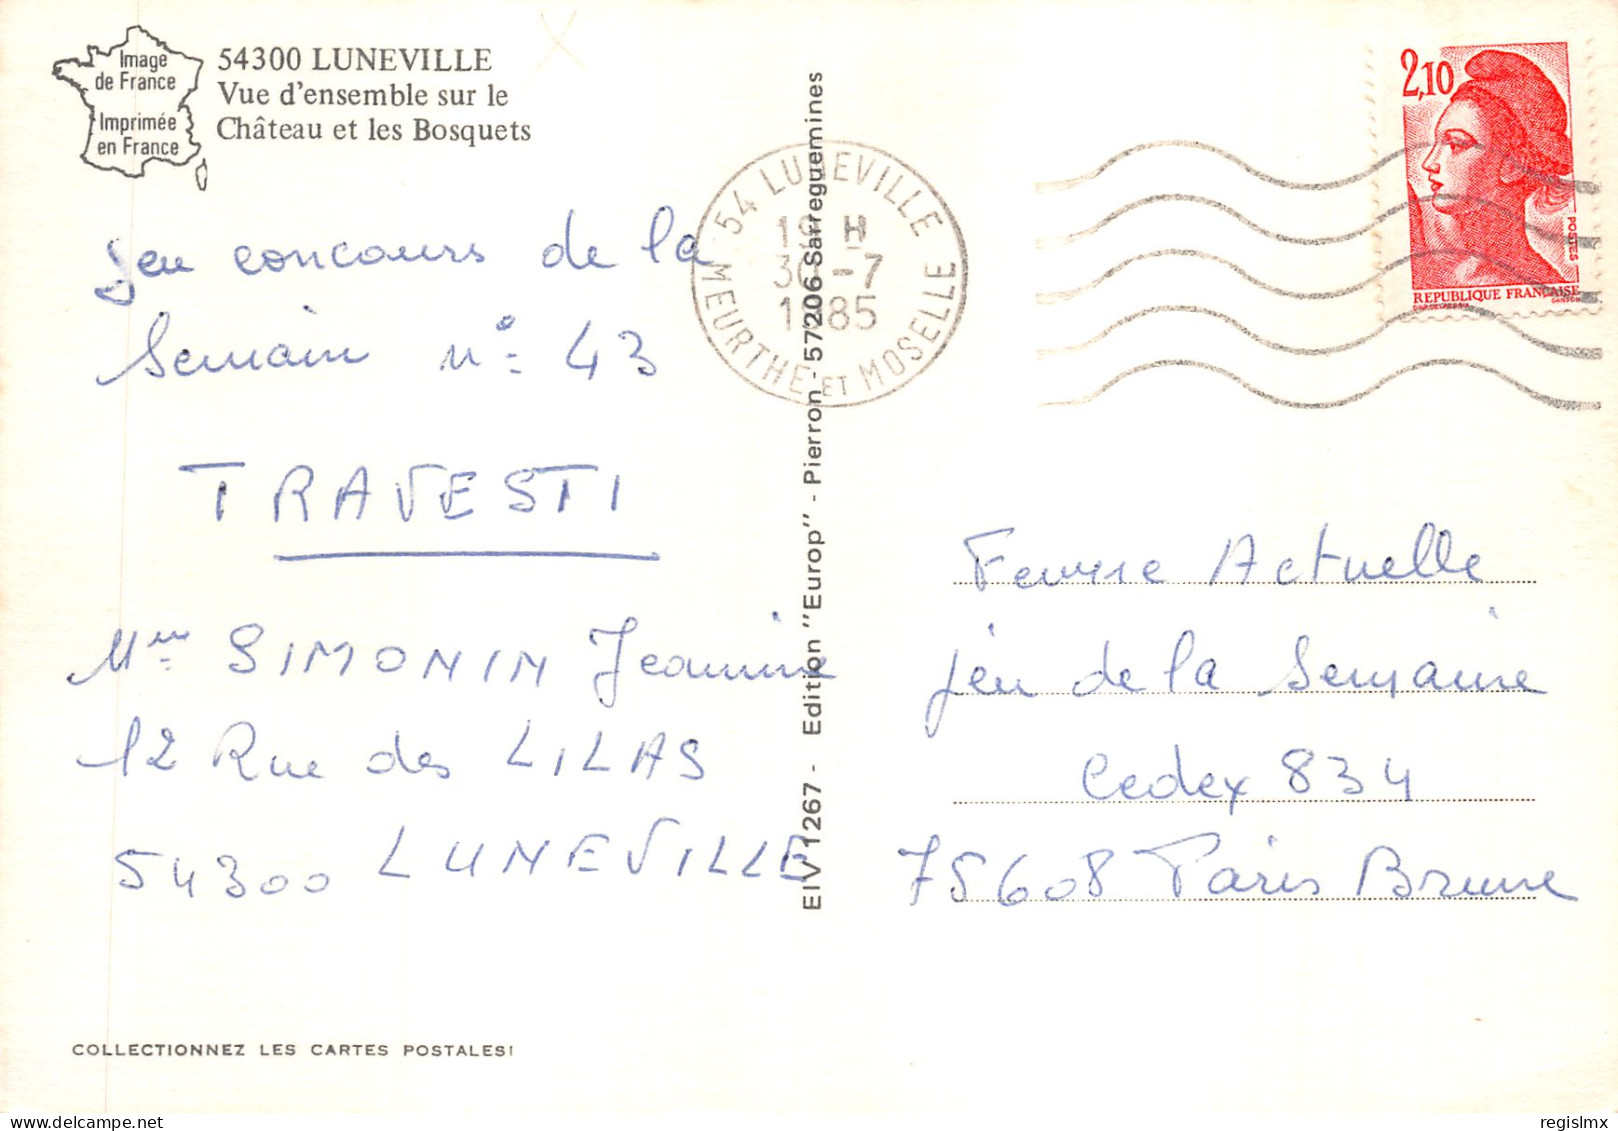 Image
de France
Imprimée
en France
54300 LUNEVILLE
Vue d'ensemble sur le
Château et les Bosquets
jeu concours de la
Semain n° 43
TRAVESTI
Mme SIMONIN Jeannine
12 Rue des LILAS
54300 LUNEVILLE
COLLECTIONNEZ LES CARTES POSTALES!
EIV 1267 - Edition "Europ" - Pierron - 57206 Sarreguemines
54 LUNEVILLE
19 H
30 -7
1985
MEURTHE ET MOSELLE
2,10
POSTES
REPUBLIQUE FRANÇAISE
GANDON
Femme Actuelle
jeu de la Semaine
Cedex 834
75608 Paris Brune
regisImx